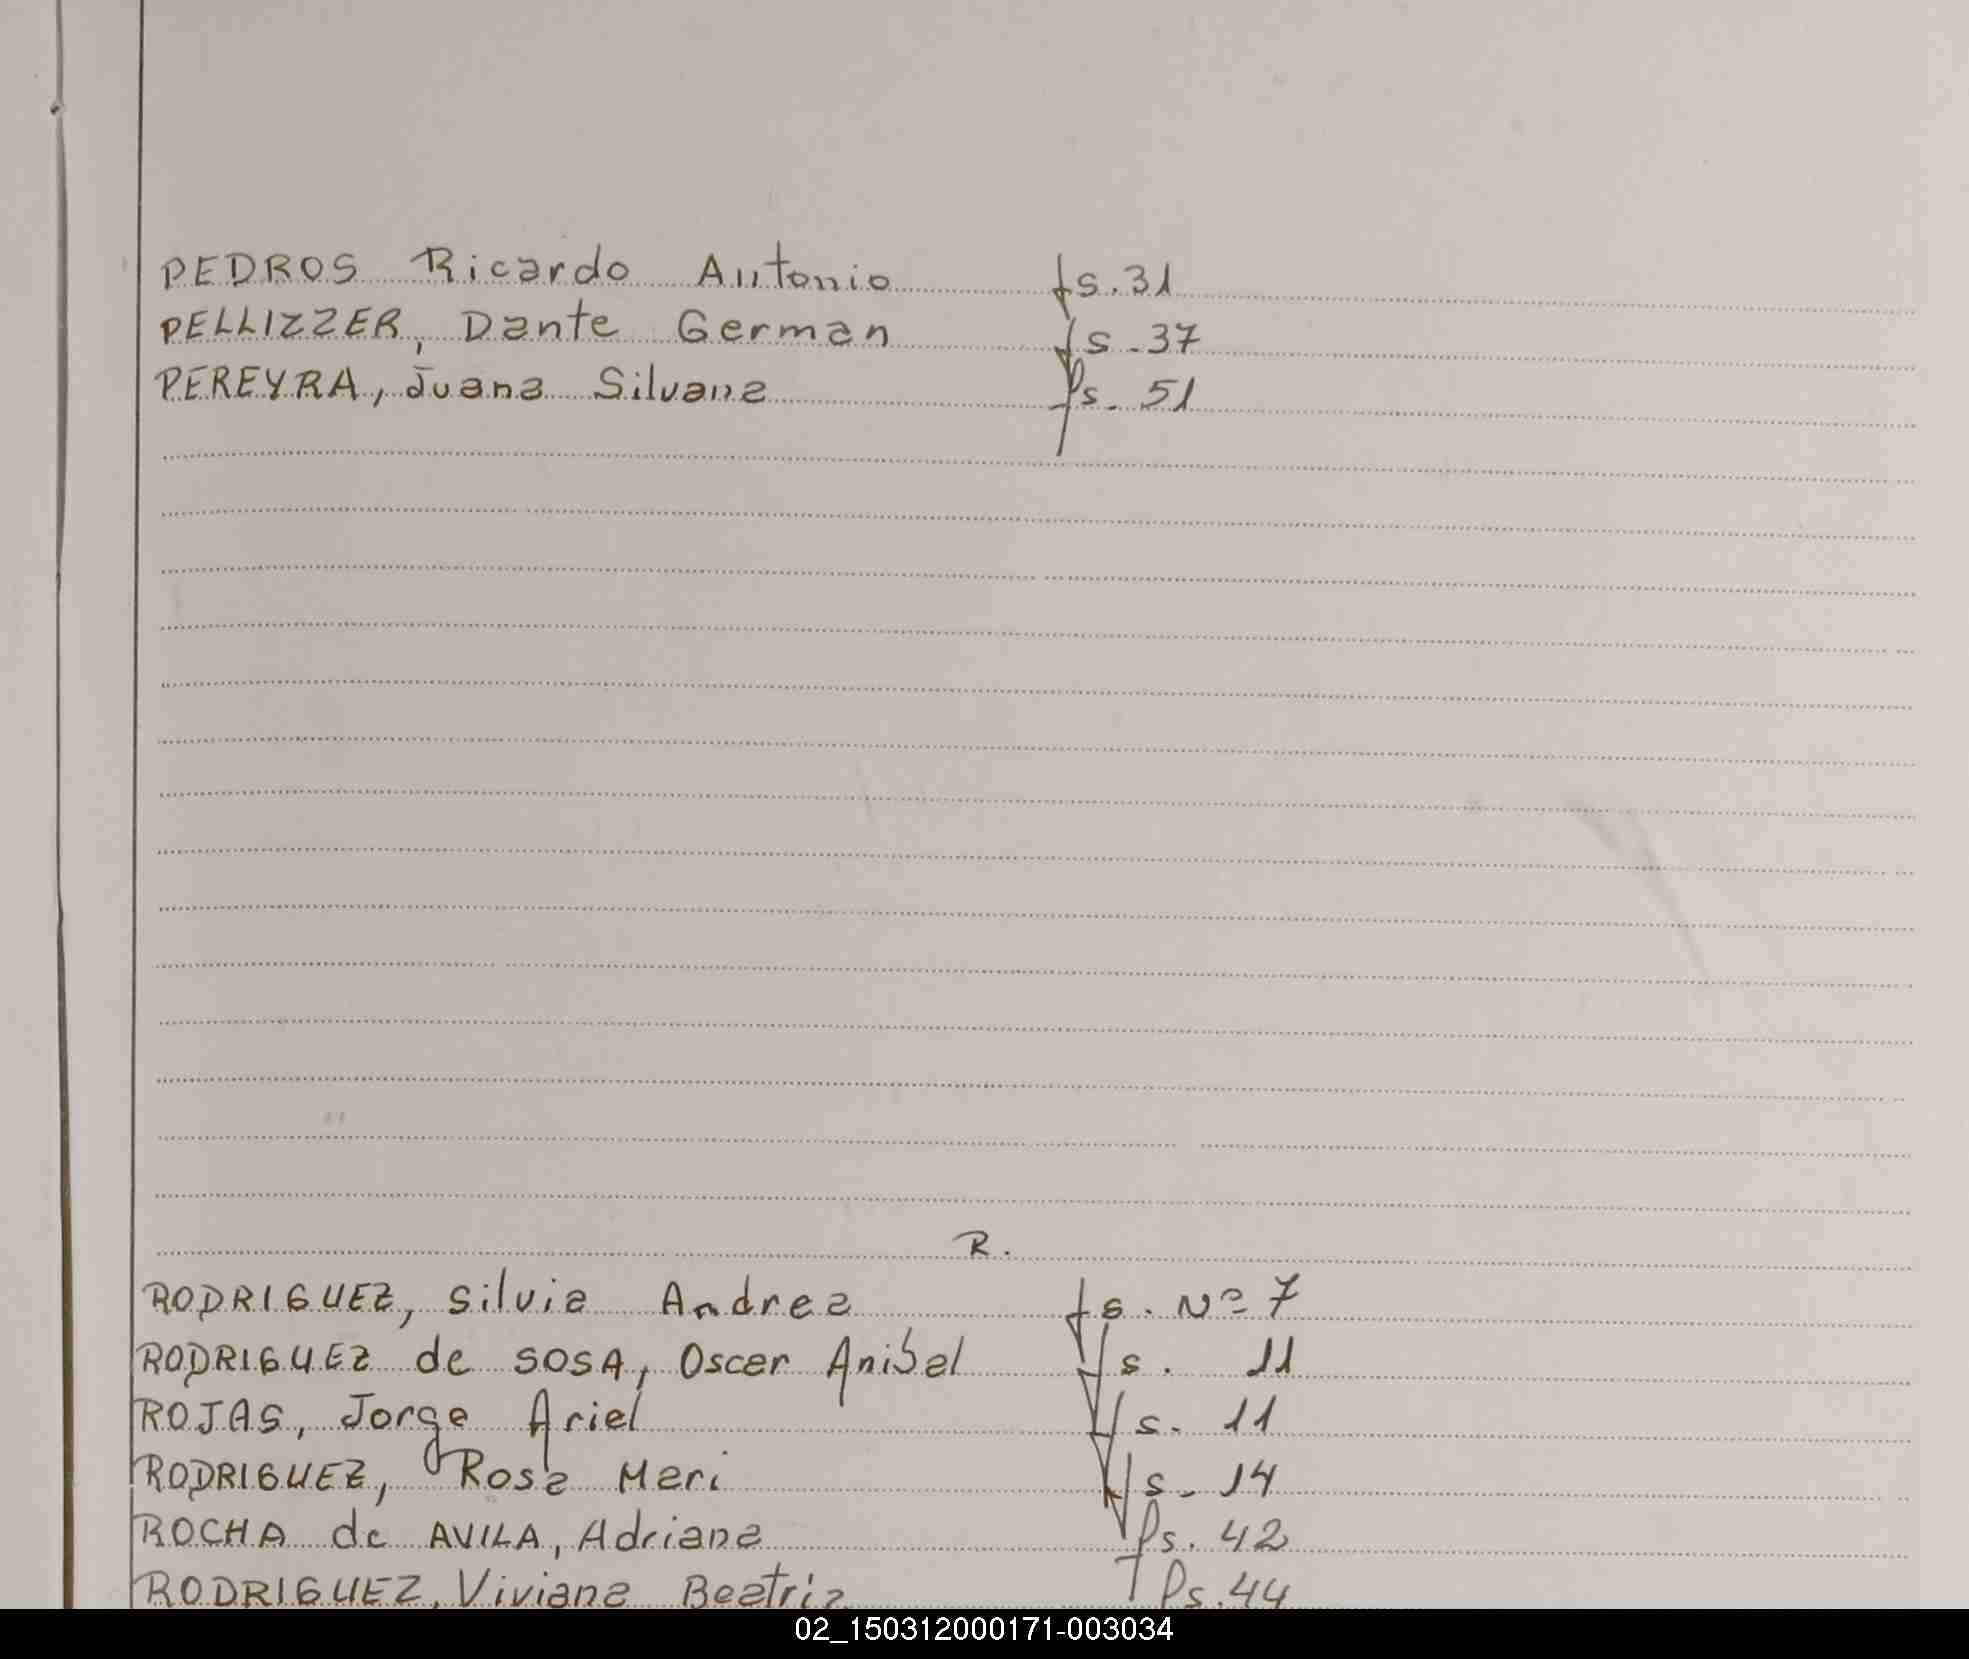 PEDROS Ricardo Antonio fs. 31
PELLIZZER, Dante German fs. 37
PEREYRA, Juana Silvana fs. 51
R.
RODRIGUEZ, Silvia Andrea fs. Nº 7
RODRIGUEZ de SOSA, Oscar Anibal fs. 11
ROJAS, Jorge Ariel fs. 11
RODRIGUEZ, Rosa Meri fs. 14
ROCHA de AVILA, Adriana fs. 42
RODRIGUEZ, Viviana Beatriz fs. 44
02_150312000171-003034